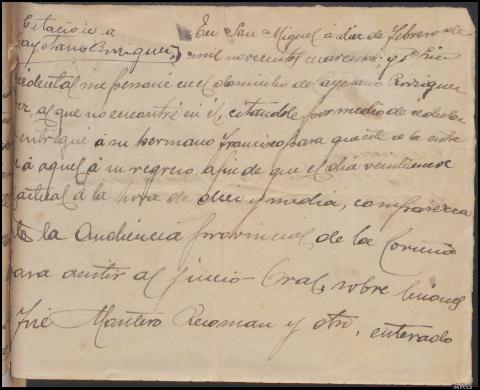 Citación a
Cayetano Rodriguez
En San Miguel a diez de Febrero de
mil novecientos cuarenta y
me personé en el domicilio de Cayetano Rodrigue
z, al que no encontré en él, citandole por medio de cedula
entregué á su hermano Francisco para que este se la entre
á aquel á su regreso, a fin de que el día veintinueve
actual á la hora de diez y media, comparezca
te la Audiencia provincial de la Coruña
para asistir al juicio Oral, sobre lesiones
José Manteiro y otro, enterado
ARG